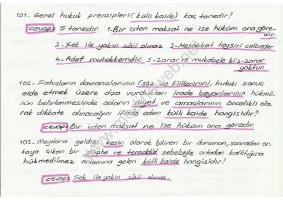 101. Genel hukuk prensipleri (külli kaide) kaç tanedir?
cevap: 5 tanedir. 1. Bir işten maksat ne ise hüküm ona göre-
dir. 2. Şek ile yakin zâil olmaz 3. Meşakkat teysiri celbeder
4. Adet muhakkemdir. 5. Zarar ve mukabele biz-zarar
yoktur.
102. Şahısların davranışlarının (söz ve fiillerinin), hukuki sonuç
elde etmek üzere dışa vurdukları irade beyanlarının hükmü-
nün belirlenmesinde onların niyet ve amaçlarının öncelikli ola-
rak dikkate alınacağını ifade eden külli kaide hangisidir?
cevap: Bir işten maksat ne ise hüküm ona göredir.
103. Meydana geldiği kesin olarak bilinen bir durumun, sonradan or-
taya çıkan bir şüphe ve tereddüt sebebiyle ortadan kalktığına
hükmedilmez anlamına gelen külli kaide hangisidir?
cevap: Şek ile yakin zâil olmaz.